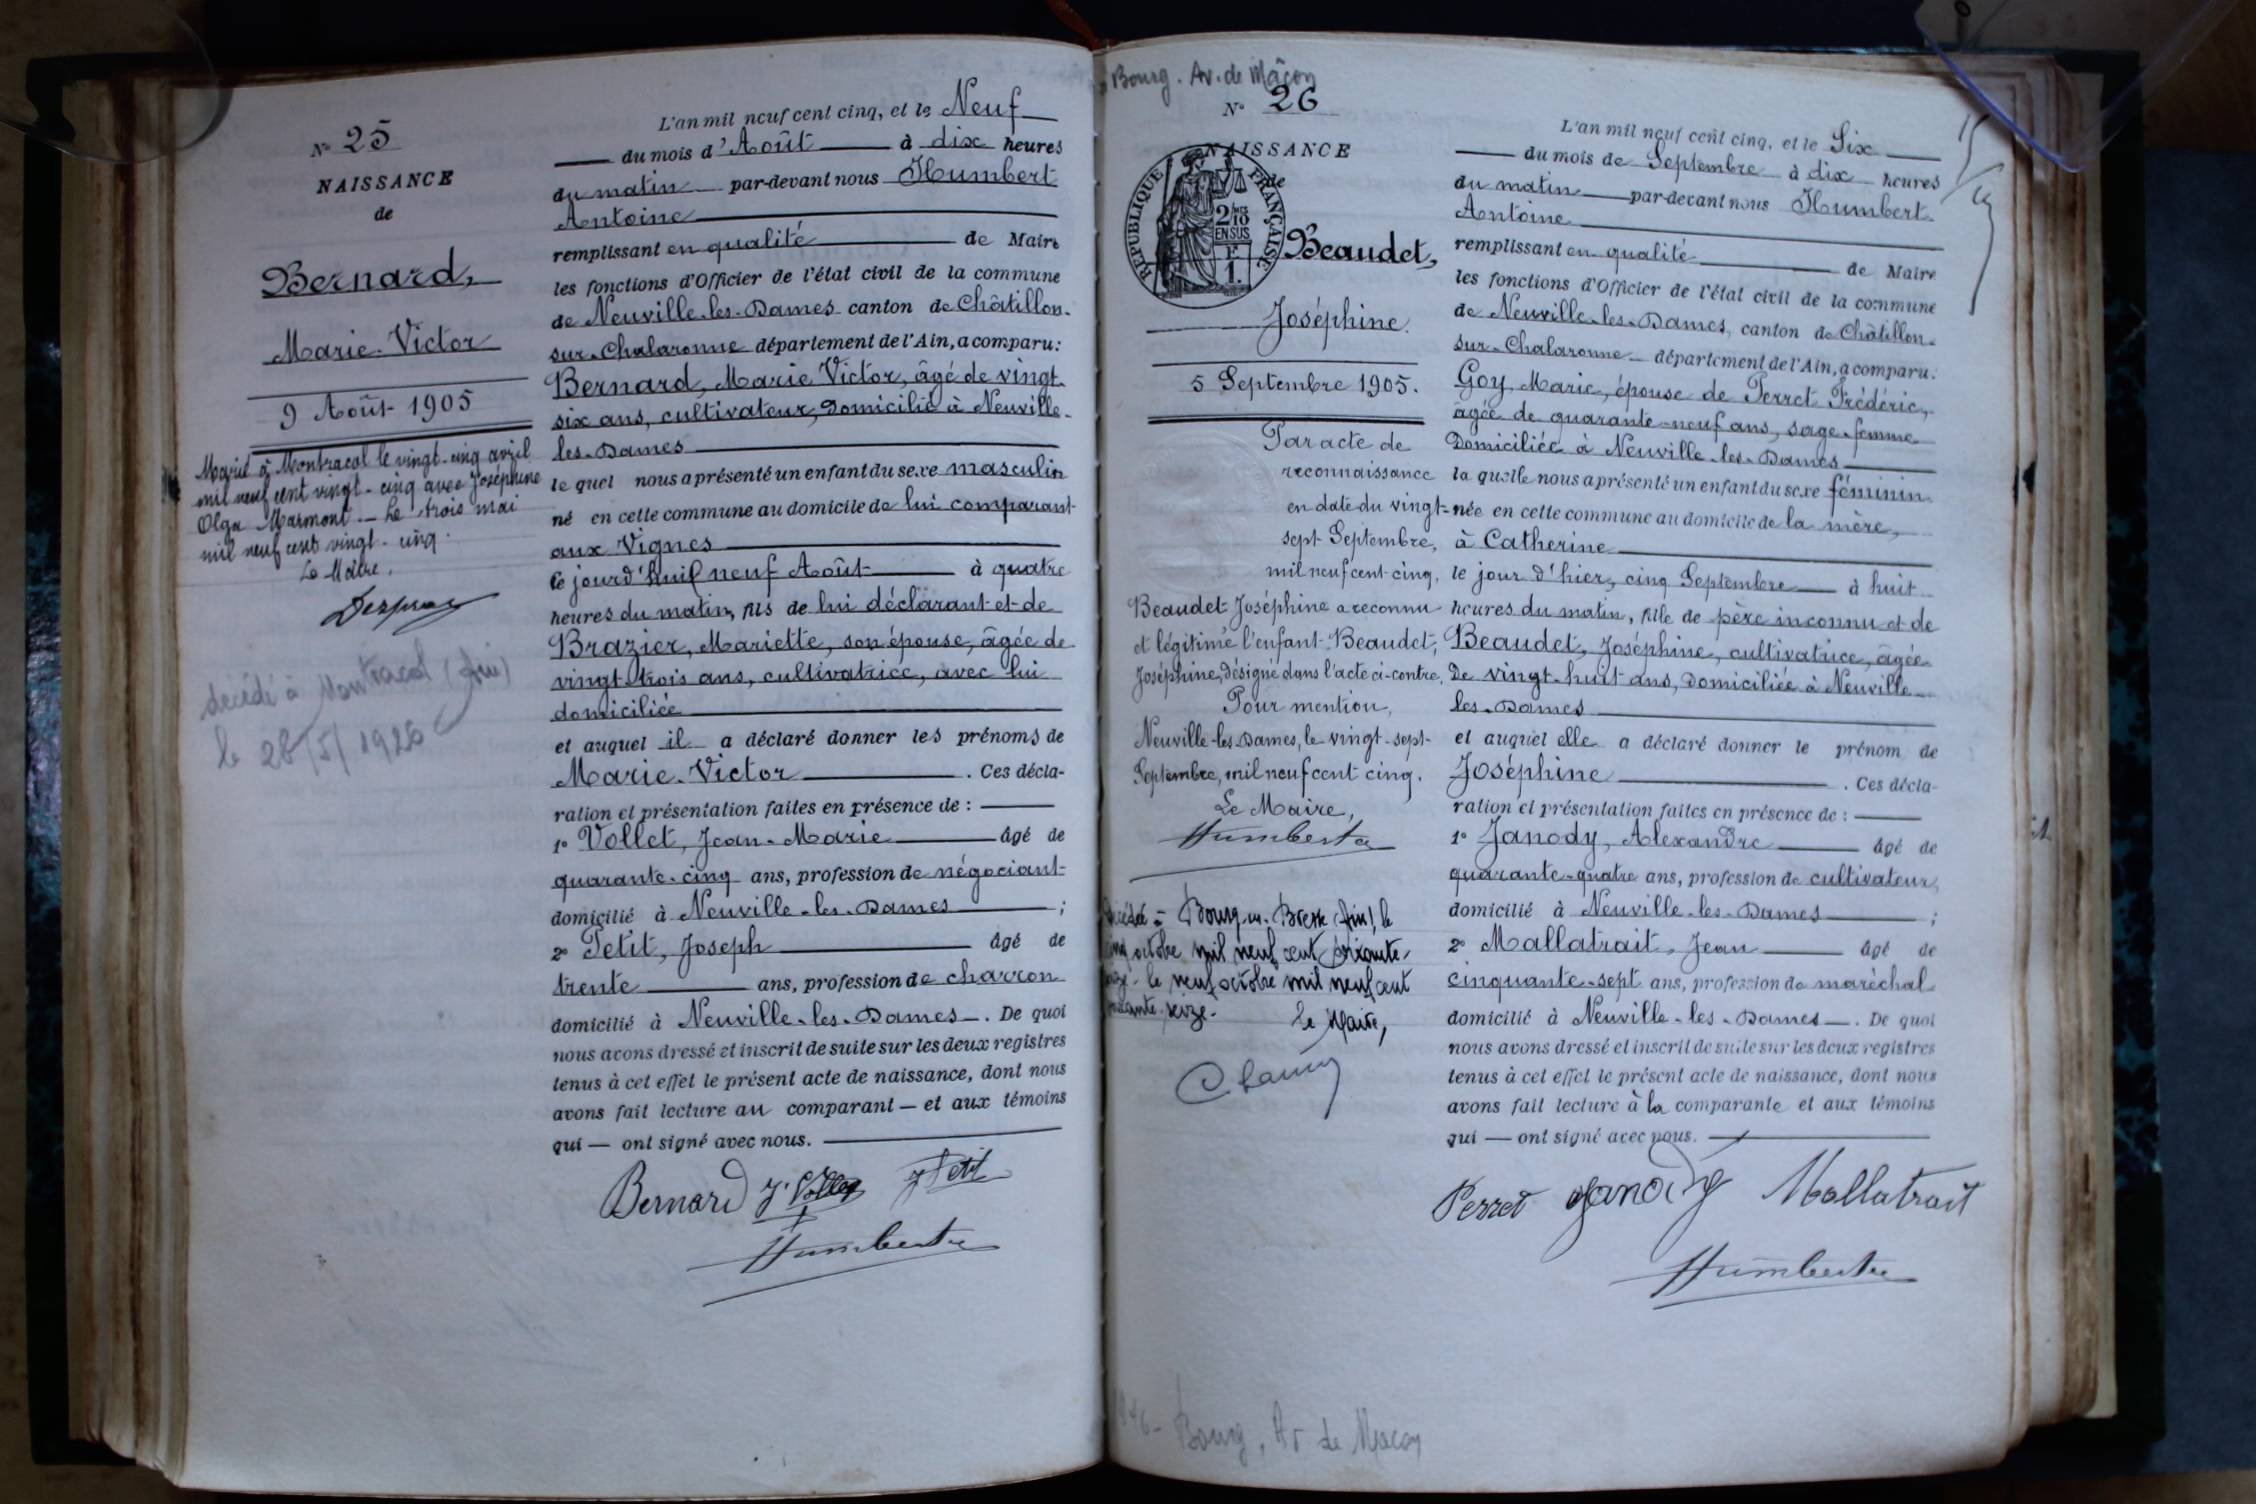 N° 25
NAISSANCE
de
Bernard,
Marie-Victor
9 Août 1905
Marié à Montracol le vingt-cinq avril
mil neuf cent vingt-cinq avec Joséphine
Olga Marmont. Le trois mai
mil neuf cent vingt-cinq.
Le Maire,
décédé à Montracol (Ain)
le 28/5/1926
L'an mil neuf cent cinq, et le Neuf
du mois d'Août à dix heures
du matin par-devant nous Humbert
Antoine
remplissant en qualité de Maire
les fonctions d'Officier de l'état civil de la commune
de Neuville-les-Dames canton de Châtillon-
sur-Chalaronne département de l'Ain, a comparu:
Bernard, Marie Victor, âgé de vingt-
six ans, cultivateur, domicilié à Neuville-
les-Dames
le quel nous a présenté un enfant du sexe masculin
né en cette commune au domicile de lui comparant
aux Vignes
ce jourd'huil neuf Août à quatre
heures du matin, fils de lui déclarant et de
Brazier, Mariette, son épouse, âgée de
vingt-trois ans, cultivatrice, avec lui
domiciliée
et auquel il a déclaré donner les prénoms de
Marie-Victor. Ces décla-
ration et présentation faites en présence de :
1° Vollet, Jean-Marie âgé de
quarante-cinq ans, profession de négociant
domicilié à Neuville-les-Dames ;
2° Petit, Joseph âgé de
trente ans, profession de charron
domicilié à Neuville-les-Dames. De quoi
nous avons dressé et inscrit de suite sur les deux registres
tenus à cet effet le présent acte de naissance, dont nous
avons fait lecture au comparant — et aux témoins
qui — ont signé avec nous.
Bernard J. Vollet J Petit
Humbert
Bourg. Av. de Mâcon
N° 26
NAISSANCE
de
REPUBLIQUE FRANÇAISE
2/10MES
EN SUS
1 F.
Beaudet,
Joséphine.
5 Septembre 1905.
Par acte de
reconnaissance
en date du vingt-
sept Septembre,
mil neuf cent cinq,
Beaudet Joséphine a reconnu
et légitimé l'enfant Beaudet,
Joséphine, désigné dans l'acte ci-contre.
Pour mention,
Neuville-les-Dames, le vingt-sept
Septembre, mil neuf cent cinq.
Le Maire,
Humbert
Bourg-en-Bresse (Ain), le
cinq octobre mil neuf cent soixante-
le neuf octobre mil neuf cent
seize.
le Maire,
L'an mil neuf cent cinq, et le Six
du mois de Septembre à dix heures
du matin par-devant nous Humbert
Antoine
remplissant en qualité de Maire
les fonctions d'Officier de l'état civil de la commune
de Neuville-les-Dames, canton de Châtillon-
sur-Chalaronne département de l'Ain, a comparu:
Goy, Marie, épouse de Perret Frédéric,
âgée de quarante-neuf ans, sage-femme
domiciliée à Neuville-les-Dames
la quelle nous a présenté un enfant du sexe féminin
née en cette commune au domicile de la mère,
à Catherine
le jour d'hier, cinq Septembre à huit
heures du matin, fille de père inconnu et de
Beaudet, Joséphine, cultivatrice, âgée
de vingt-huit ans, domiciliée à Neuville-
les-Dames
et auquel elle a déclaré donner le prénom de
Joséphine. Ces décla-
ration et présentation faites en présence de :
1° Janody, Alexandre âgé de
quarante-quatre ans, profession de cultivateur,
domicilié à Neuville-les-Dames ;
2° Mallatrait, Jean âgé de
cinquante-sept ans, profession de maréchal
domicilié à Neuville-les-Dames. De quoi
nous avons dressé et inscrit de suite sur les deux registres
tenus à cet effet le présent acte de naissance, dont nous
avons fait lecture à la comparante et aux témoins
qui — ont signé avec nous.
Perret Janody Mallatrait
Humbert
Bourg, Av de Macon